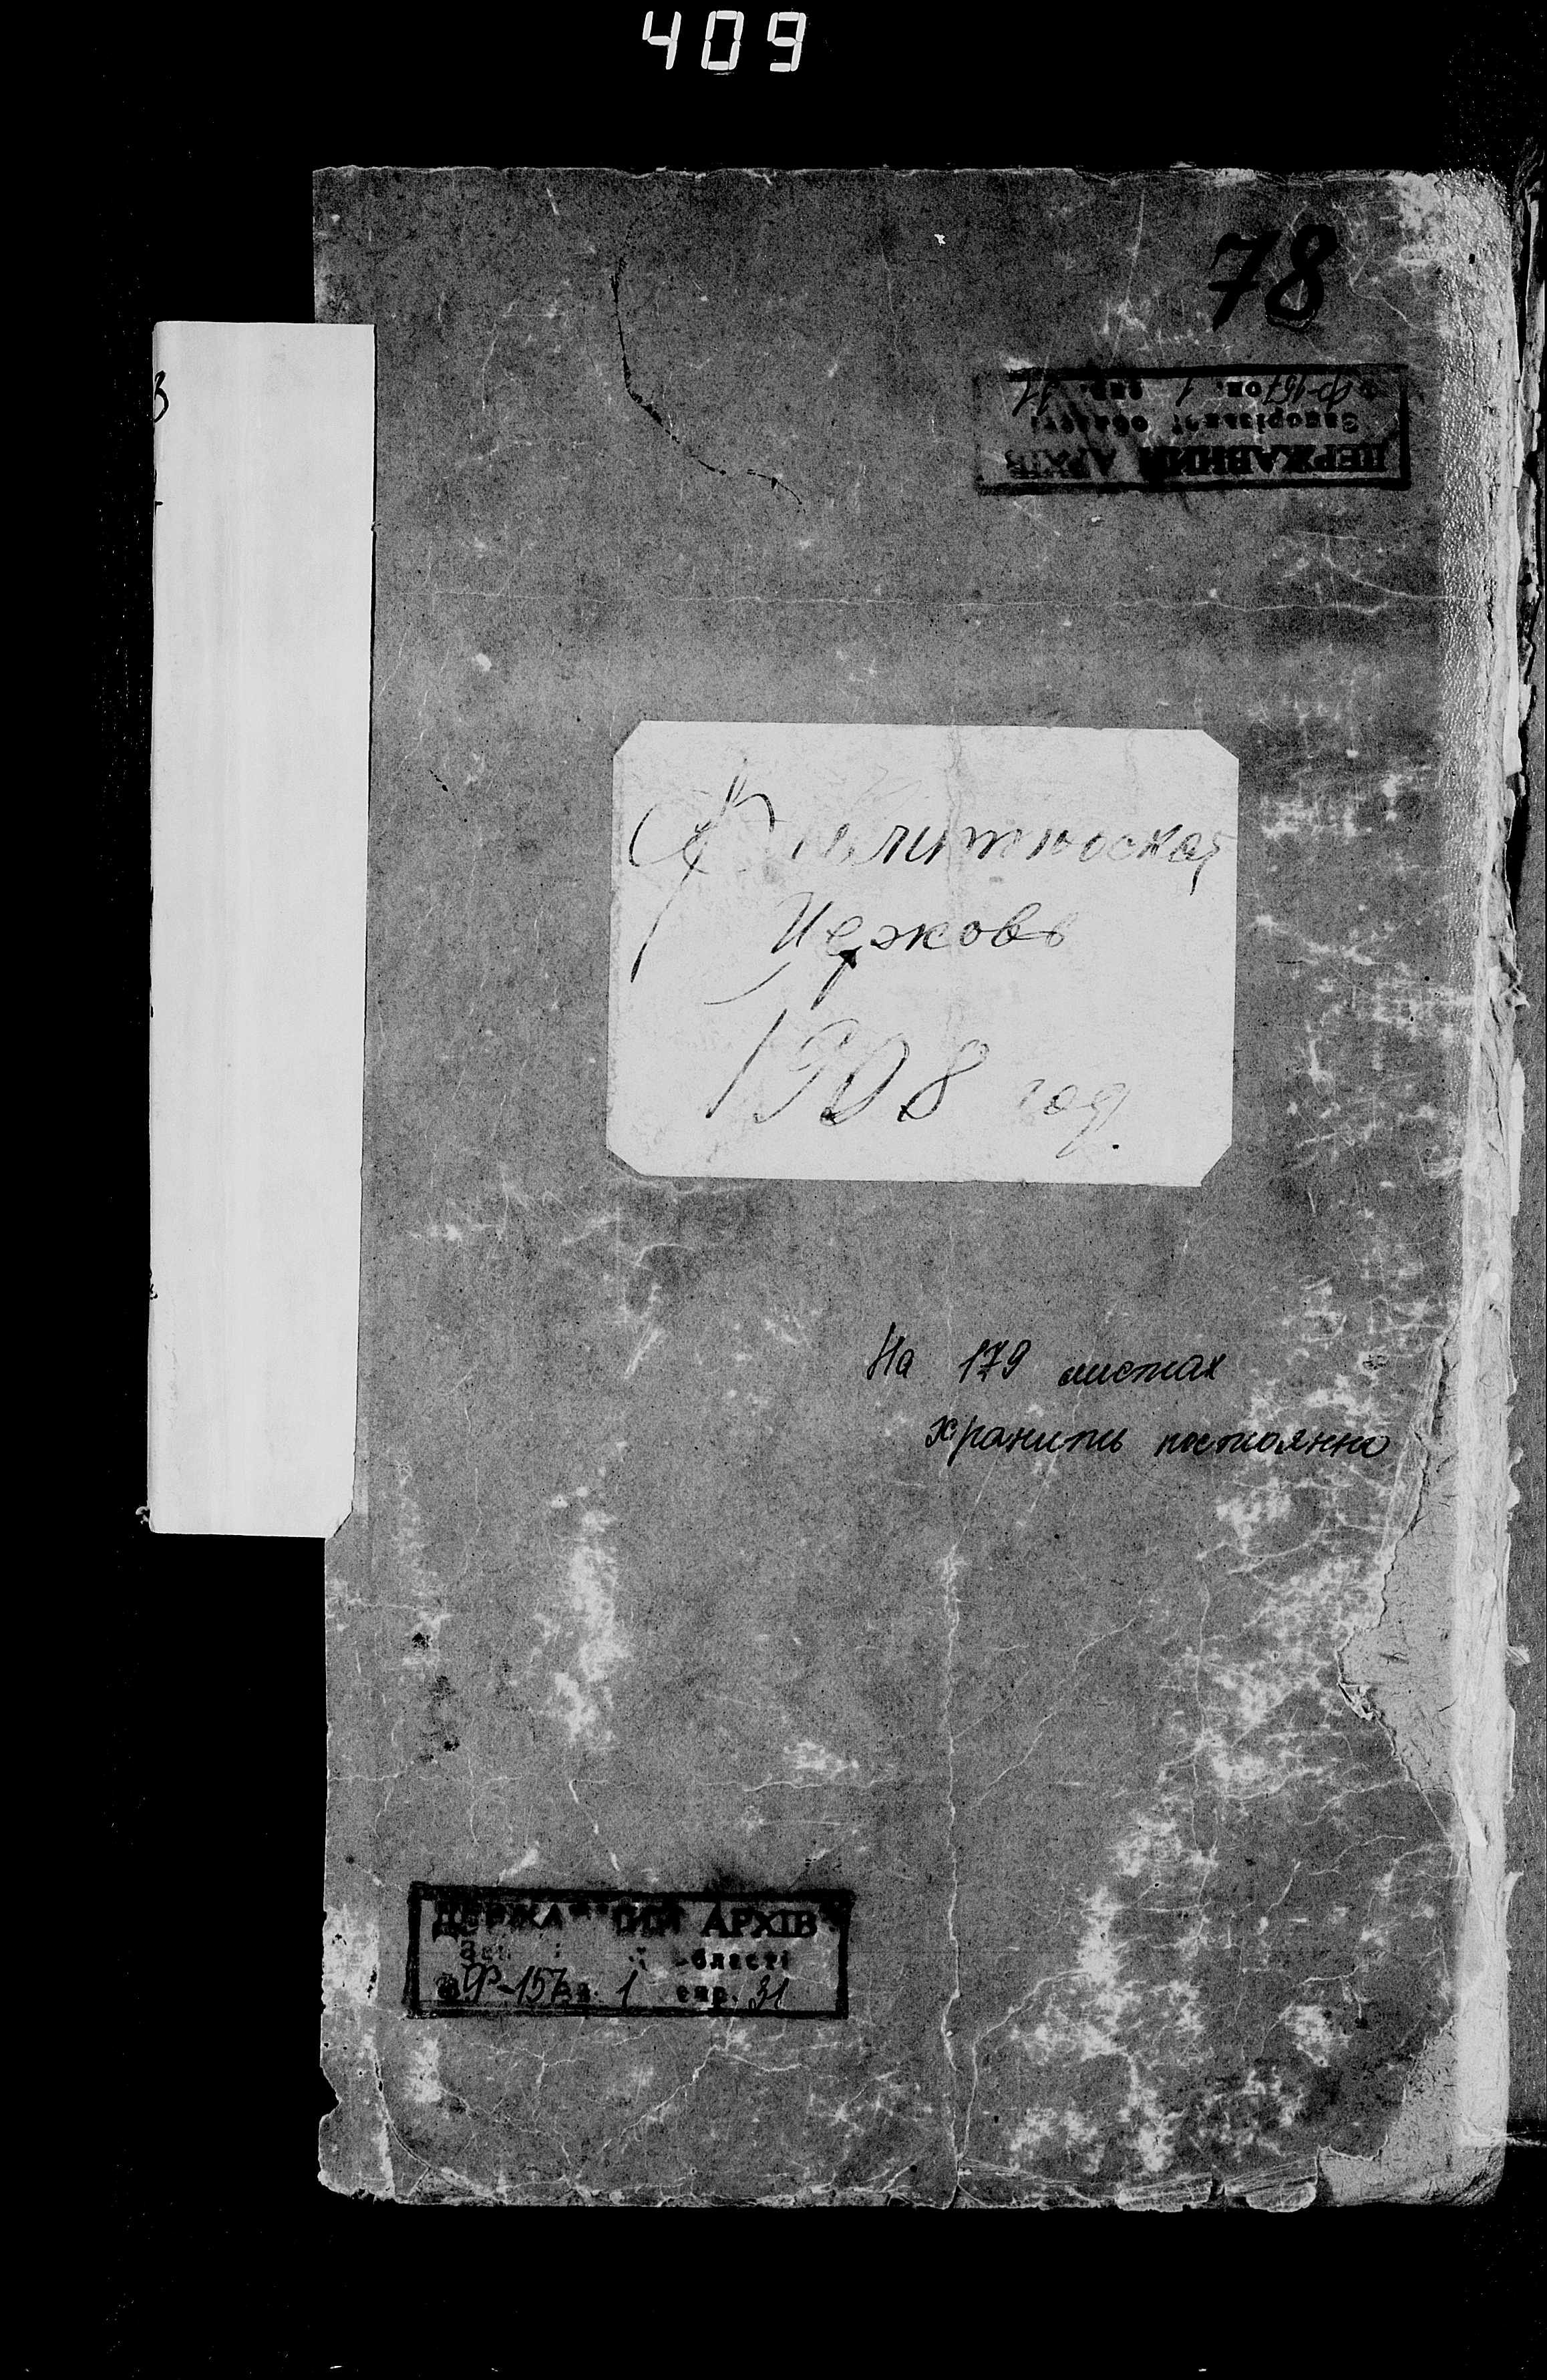 409
78
ДЕРЖАВНИЙ АРХІВ
Запорізької області
Ф-157 оп. 1 спр. 31
Церковь
1908 год.
На 179 листах
хранить постоянно
АРХІВ
області
Ф-157 1 спр. 31